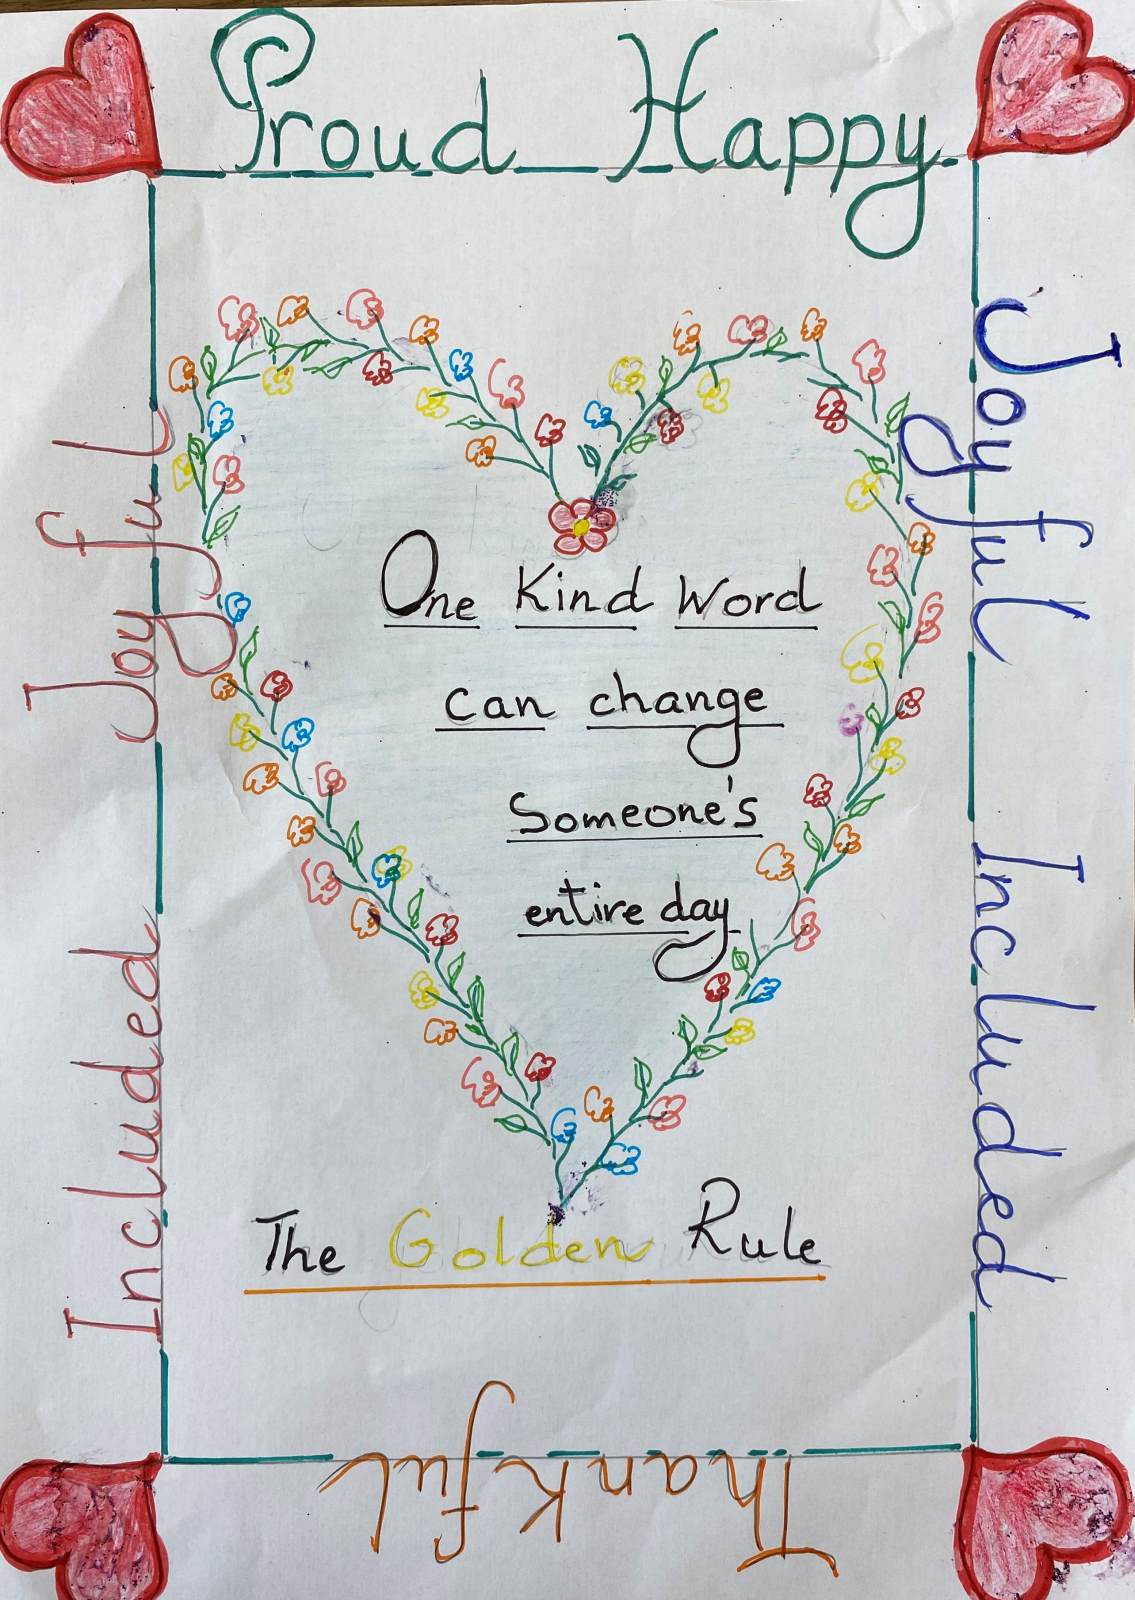 Proud Happy
Joyful Included
One Kind Word
can change
Someone's
entire day
The Golden Rule
Included Joyful
Thankful